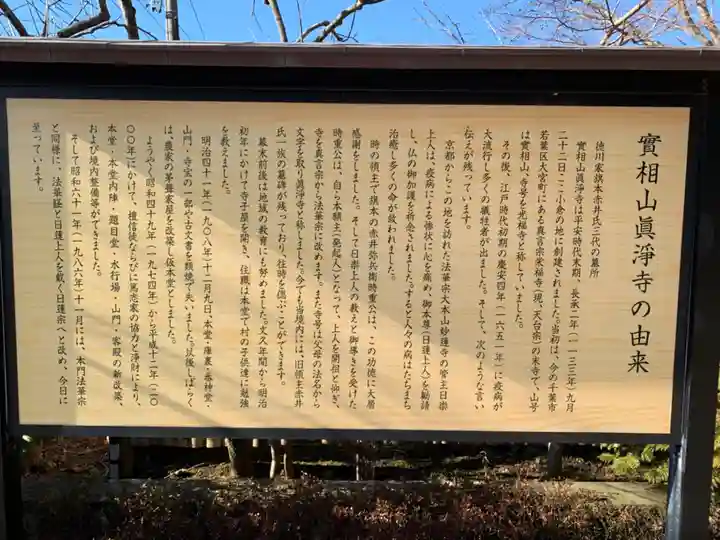 實相山眞淨寺の由来
徳川家旗本赤井氏三代の墓所
實相山眞淨寺は平安時代末期、長承二年(一一三三年)九月
二十二日、ここ小倉の地に創建されました。当初は、今の千葉市
若葉区大宮町にある真言宗栄福寺(現、天台宗)の末寺で、山号
は實相山、寺号を光福寺と称していました。
その後、江戸時代初期の慶安四年(一六五一年)に疫病が
大流行し多くの犠牲者が出ました。そして、次のような言い
伝えが残っています。
京都からこの地を訪れた法華宗大本山妙蓮寺の管主日崇
上人は、疫病による惨状に心を痛め、御本尊(日蓮上人)を勧請
し、仏の御加護を祈念されました。すると人々の病はたちまち
治癒し多くの命が救われました。
時の領主で旗本の赤井弥兵衛時重公は、この功徳に大層
感謝をしました。そして日崇上人の教えと御導きを受けた
時重公は、自ら本願主(発起人)となって、上人を開祖と仰ぎ、
寺を真言宗から法華宗に改めます。また寺号は父母の法名から
文字を取り眞淨寺と称しました。今でも当境内には、旧領主赤井
氏一族の墓碑が残っており、往時を偲ぶことができます。
幕末前後は地域の教育にも努めました。文久年間から明治
初年にかけて寺子屋を開き、住職は本堂で村の子供達に勉強
を教えました。
明治四十一年(一九〇八年)十二月九日、本堂・庫裏・番神堂・
山門・寺宝の一部や古文書を類焼で失いました。以後しばらく
は、農家の茅葺家屋を改築し仮本堂としました。
ようやく昭和四十九年(一九七四年)から平成十二年(二〇
〇〇年)にかけて、檀信徒ならびに篤志家の協力と浄財により、
本堂・本堂内陣・題目堂・水行場・山門・客殿の新改築、
および境内整備等ができました。
そして昭和六十一年(一九八六年)十一月には、本門法華宗
と同様に、法華経と日蓮上人を戴く日蓮宗へと改め、今日に
至っています。